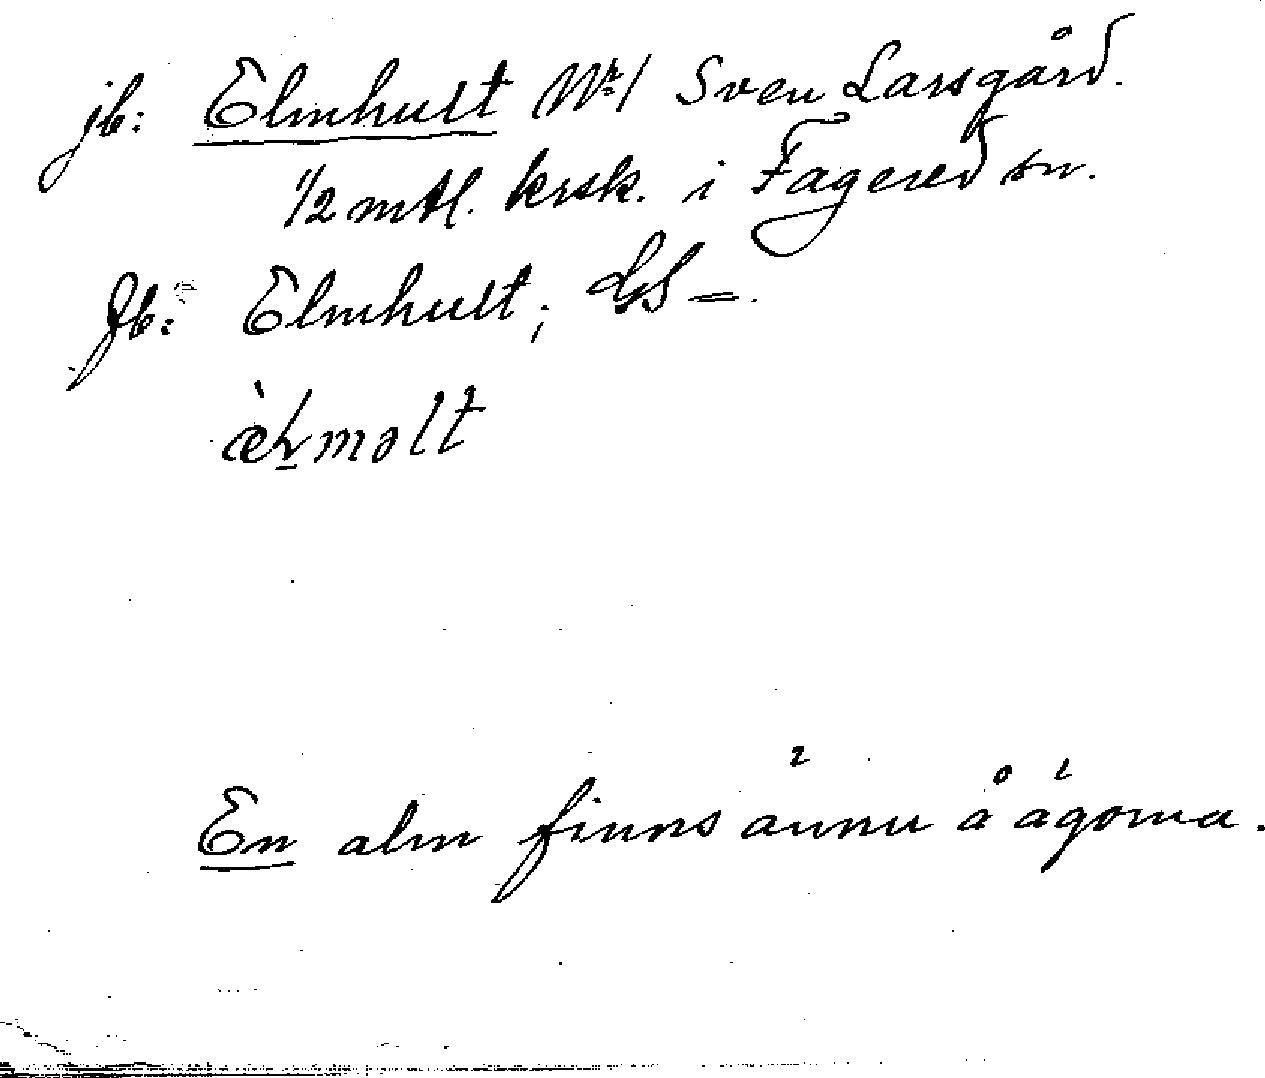 jb: Elmhult Nr 1 Sven Larsgård.
1/2 mtl. krsk. i Fagered sn.
Jb: Elmhult; GS =.
En alm finns ännu å ägorna.